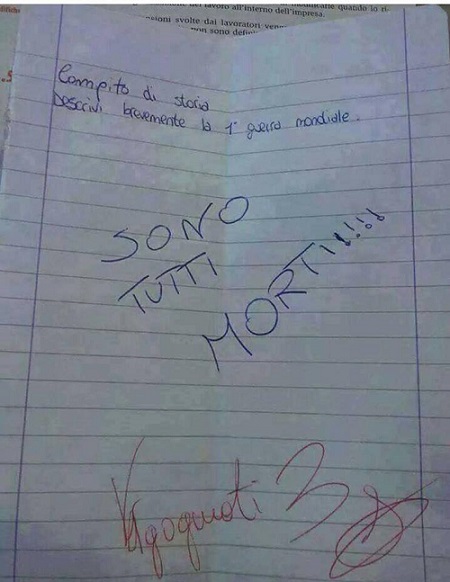 lavoro all'interno dell'impresa.
svolte dai lavoratori
non sono
Compito di storia
Descrivi brevemente la 1ª guerra mondiale.
SONO
TUTTI
MORTI!!!!
Vergognati 3